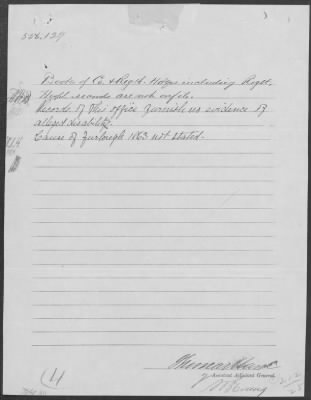 556.129
Books of Co. & Regt. Hdqrs including Regt.
Hospl records are not on file.
Records of this office furnish no evidence of
alleged disability.
Cause of furlough 1863 not stated.
Assistant Adjutant General
4